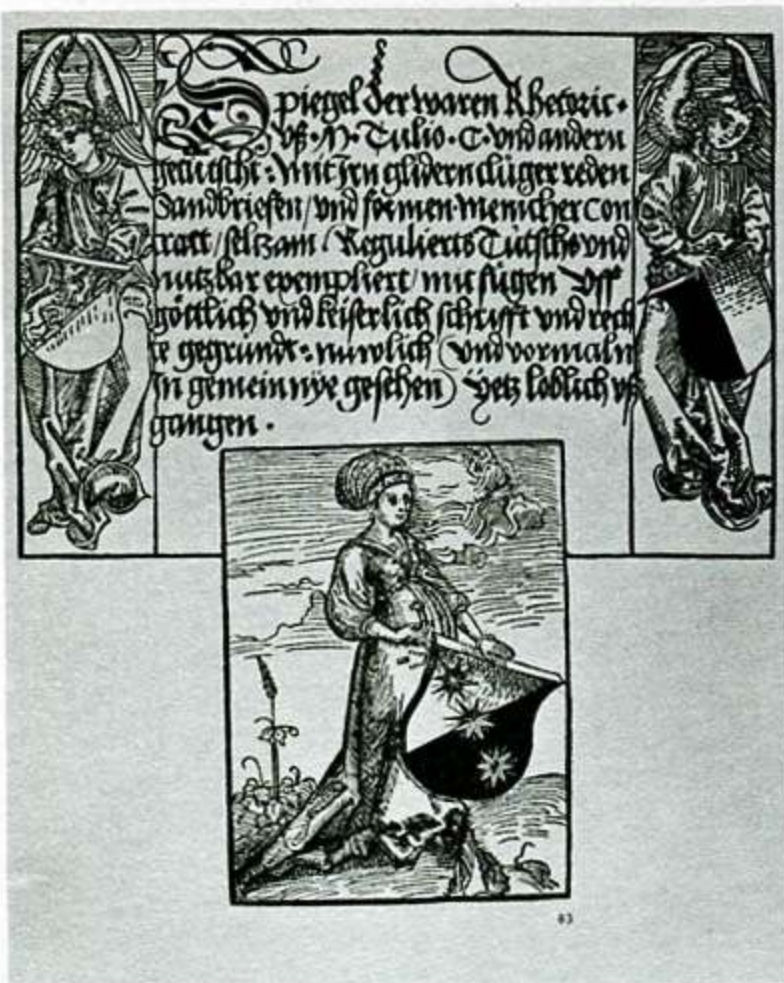 Spiegel der waren Rhetoric.
vß. M. Tulio. C. vnd andern
getütscht: Mit Irn glidern clüger reden
Sandbriefen/ vnd formen. Menicher con
tract/ seltzam. Regulierts Tütschs vnd
nutzbar exempliert/ mit fügen vff
göttlich vnd keiserlich schrifft vnd rech
te gegründt: nuwlich (vnd vormaln
In gemein nÿe gesehen) Yetz loblich vß
gangen.
83